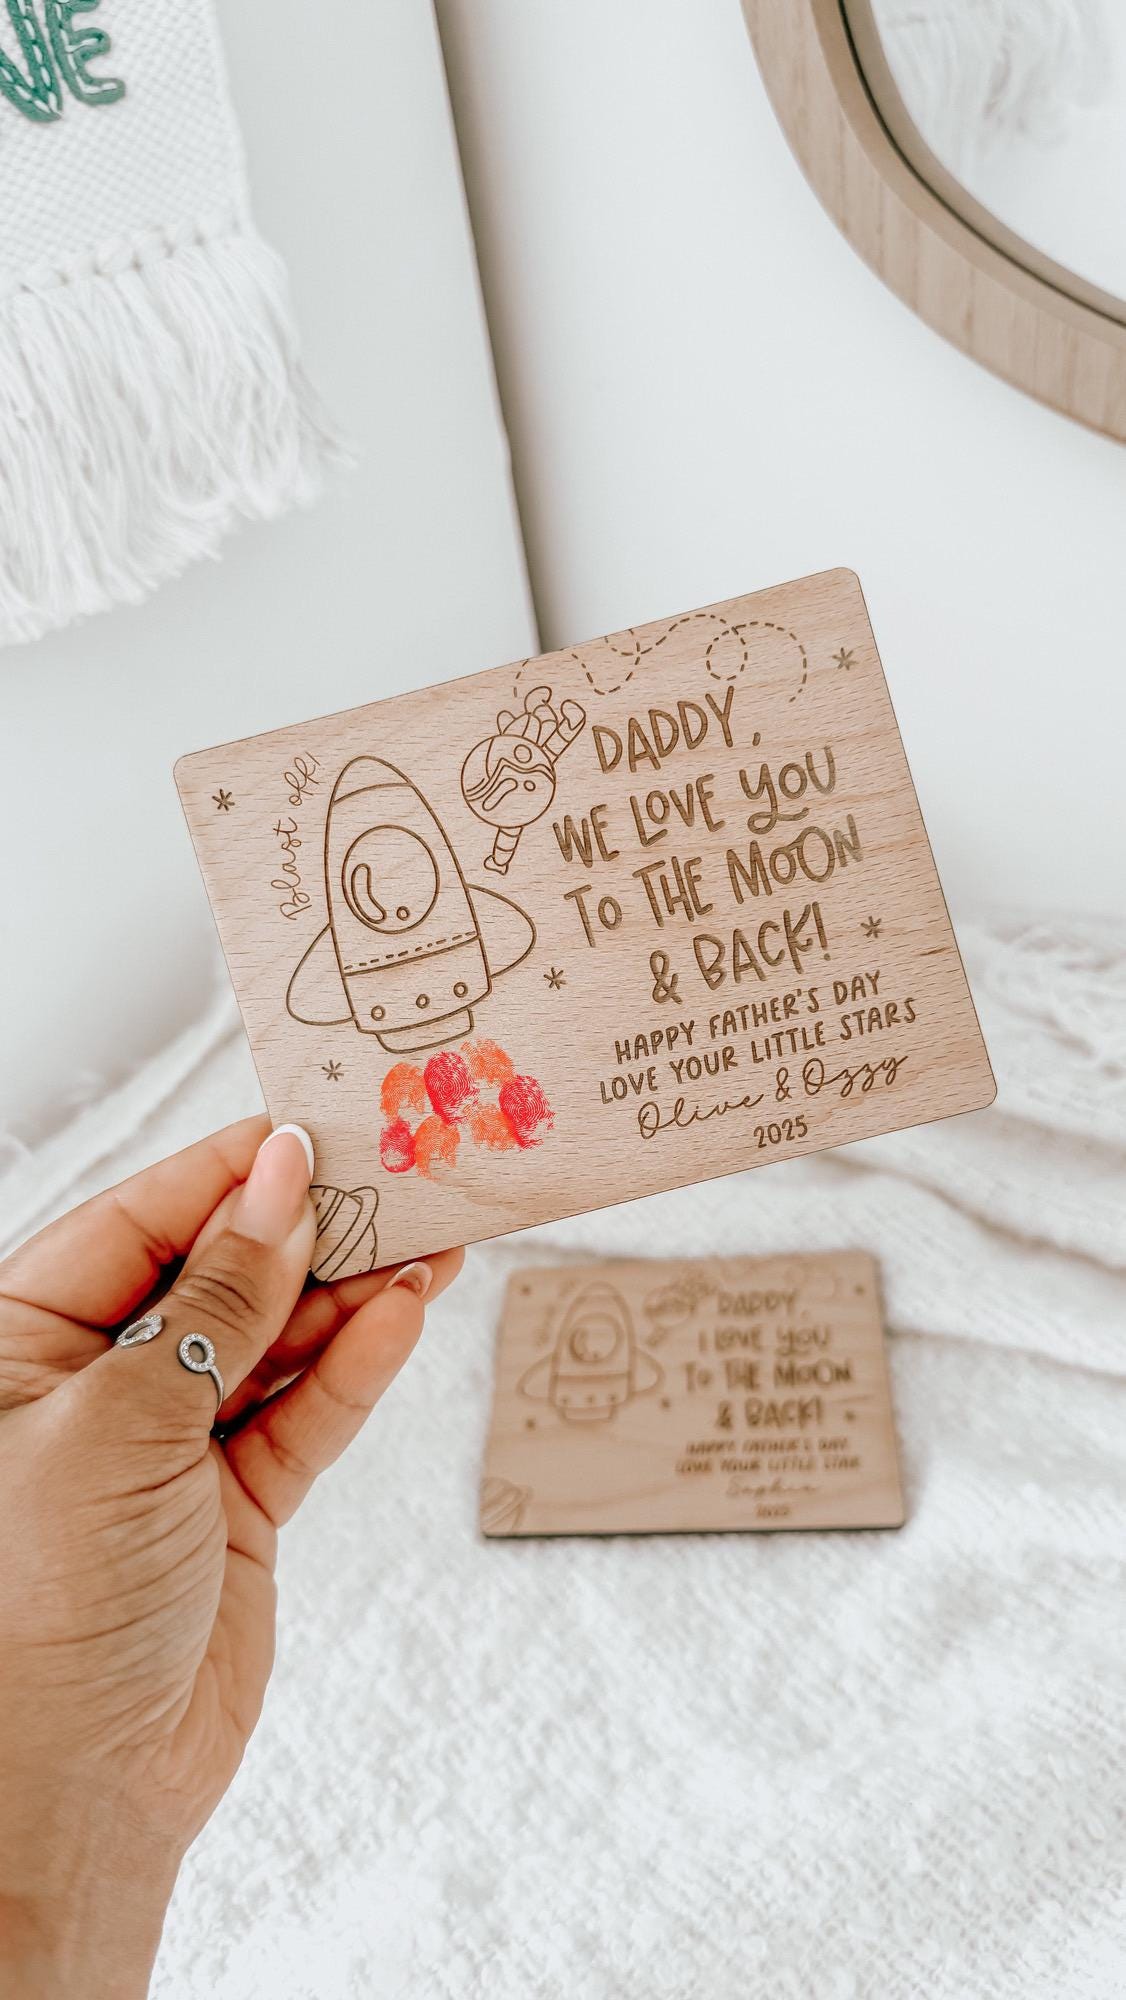 VE
Blast off!
DADDY,
WE LOVE YOU
TO THE MOON
& BACK!
HAPPY FATHER'S DAY
LOVE YOUR LITTLE STARS
Olive & Ozzy
2025
DADDY,
I LOVE YOU
TO THE MOON
& BACK!
HAPPY FATHER'S DAY
LOVE YOUR LITTLE STAR
Sophia